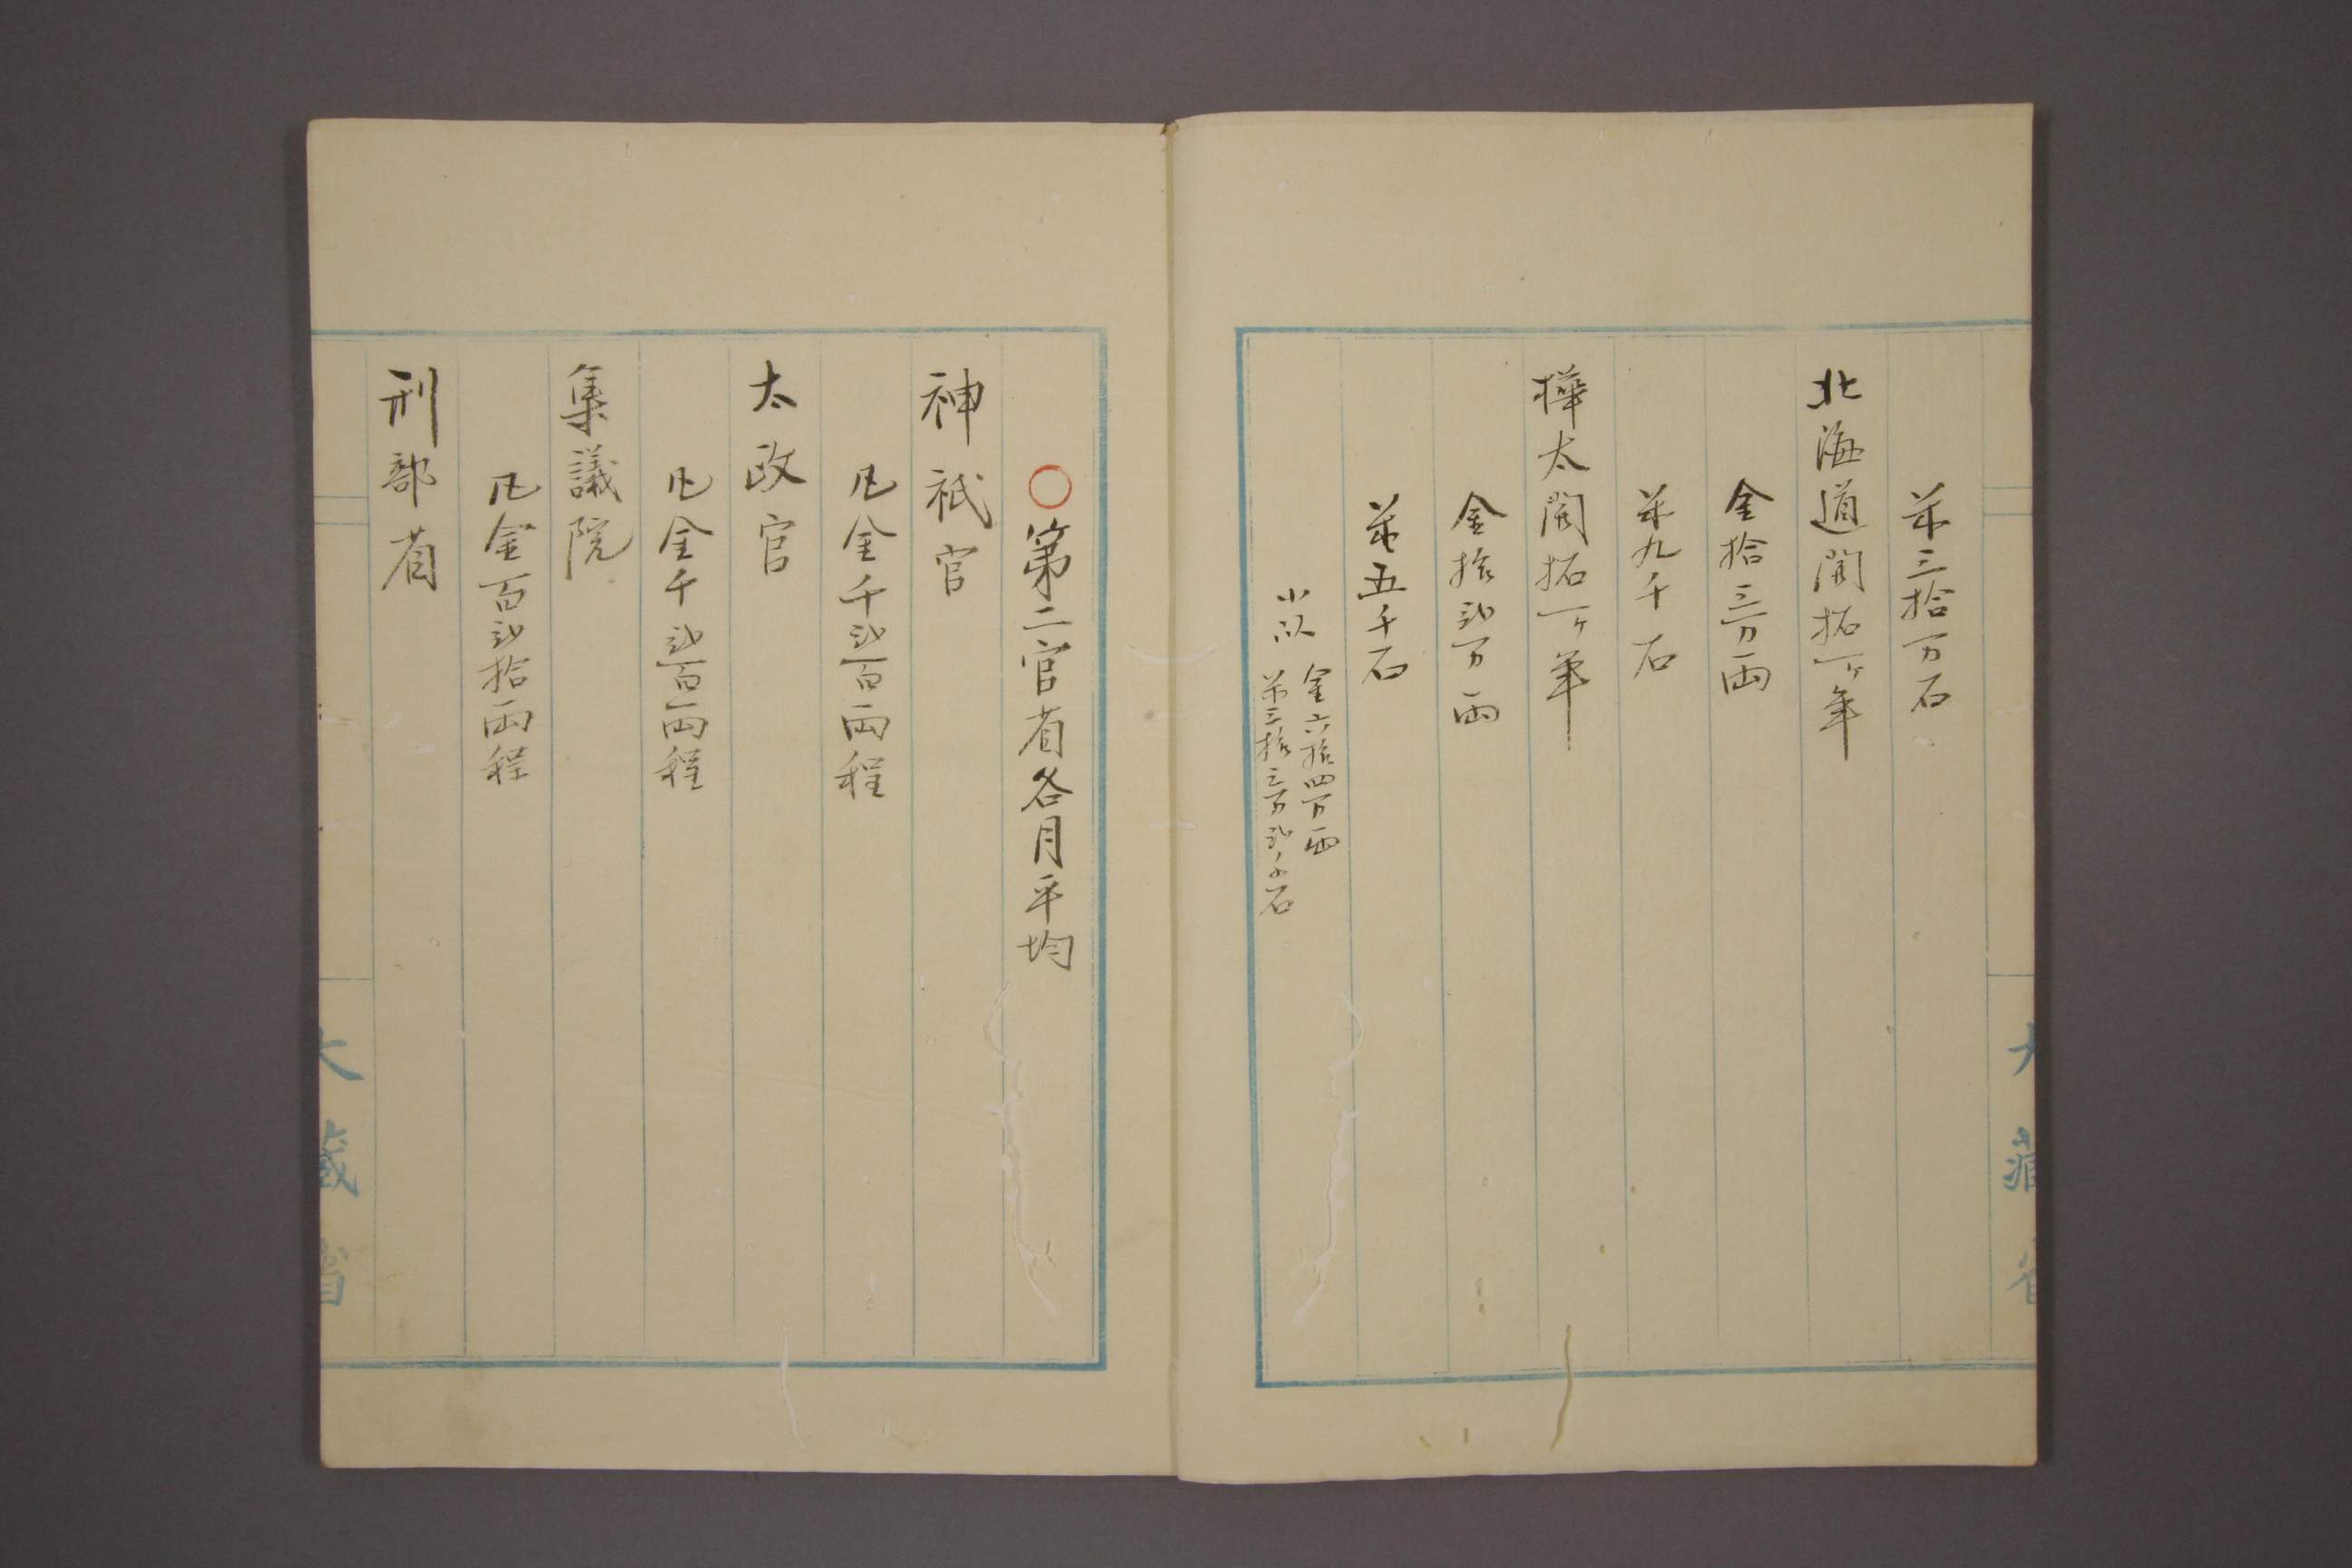 米三拾万石
北海道開拓一ヶ年
金拾三万両
米九千石
樺太開拓一ヶ年
金拾弐万両
米五千石
小以
金六拾四万両
米三拾三万弐千石
○第二官省各月平均
神祇官
凡金千弐百両程
太政官
凡金千弐百両程
集議院
凡金百弐拾両程
刑部省
大藏省
大藏省